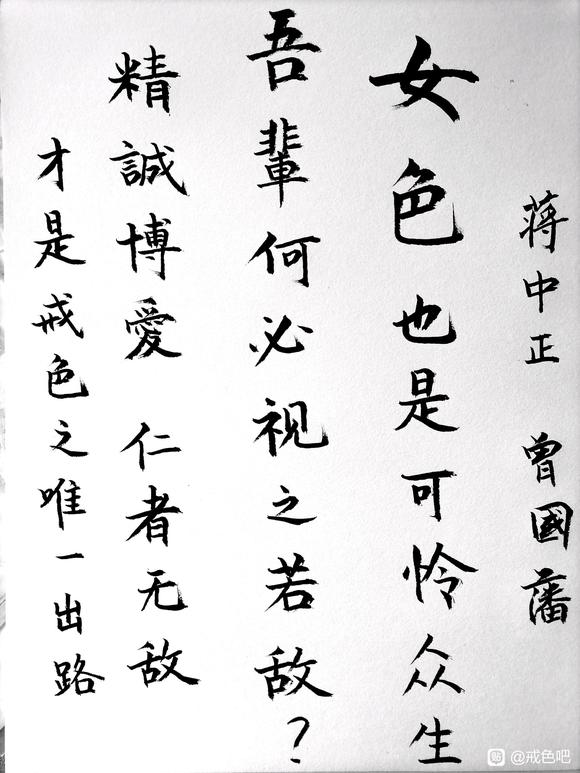 蔣中正 曾國藩
女色也是可怜众生
吾輩何必视之若敌？
精誠博愛 仁者无敌
才是戒色之唯一出路
贴 @戒色吧